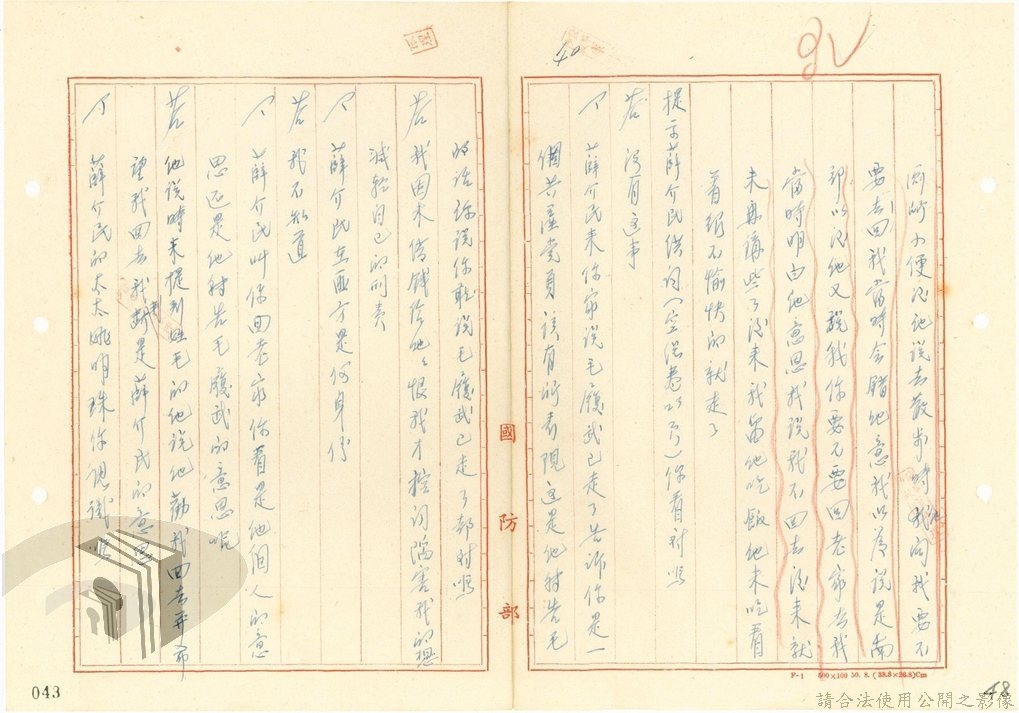 廁所小便後他說去散步時他問我要不
要去回我當時會錯他意我以為說是南
部以後他又說我你要不要回老家去我
當時明白他意思我說我不回去後來就
未再講些了後來我留他吃飯他未吃看
著很不愉快的就走了
提示薛介民供詞(空偵卷25頁)你看對嗎
答 沒有這事
薛介民來你家說毛履武已走了告訴你是一
個共產黨員該有所表現這是他轉告毛
的話你說你聽說毛履武已走了都對嗎
答 我因未借錢給他他恨我才控訴陷害我的想
減輕自己的刑責
薛介民在匪方是何身份
答 我不知道
薛介民叫你回老家你看是他個人的意
思還是他轉告毛履武的意思呢
答 他說時未提到姓毛的他說他勸我回去並希
望我回去我判斷是薛介民的意思
薛介民的太太姚明珠你認識嗎
國防部
40
043
48
F-1 500×100 50. 8. (38.9×26.8)Cm
請合法使用公開之影像